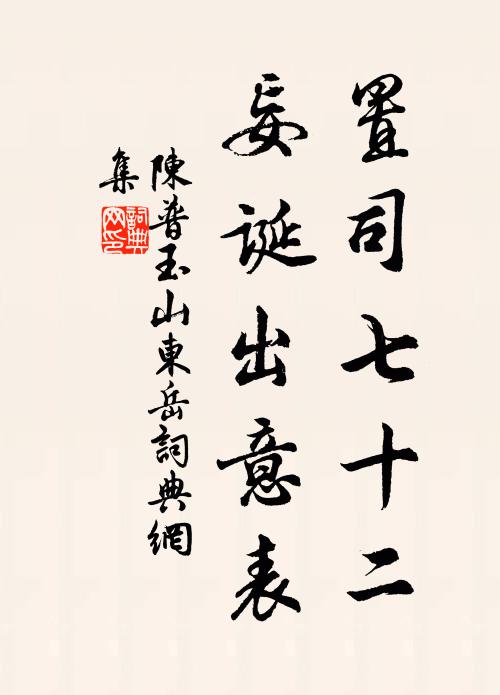 置司七十二
妄誕出意表
陳普玉山東岳詞典網
集
詞典網印